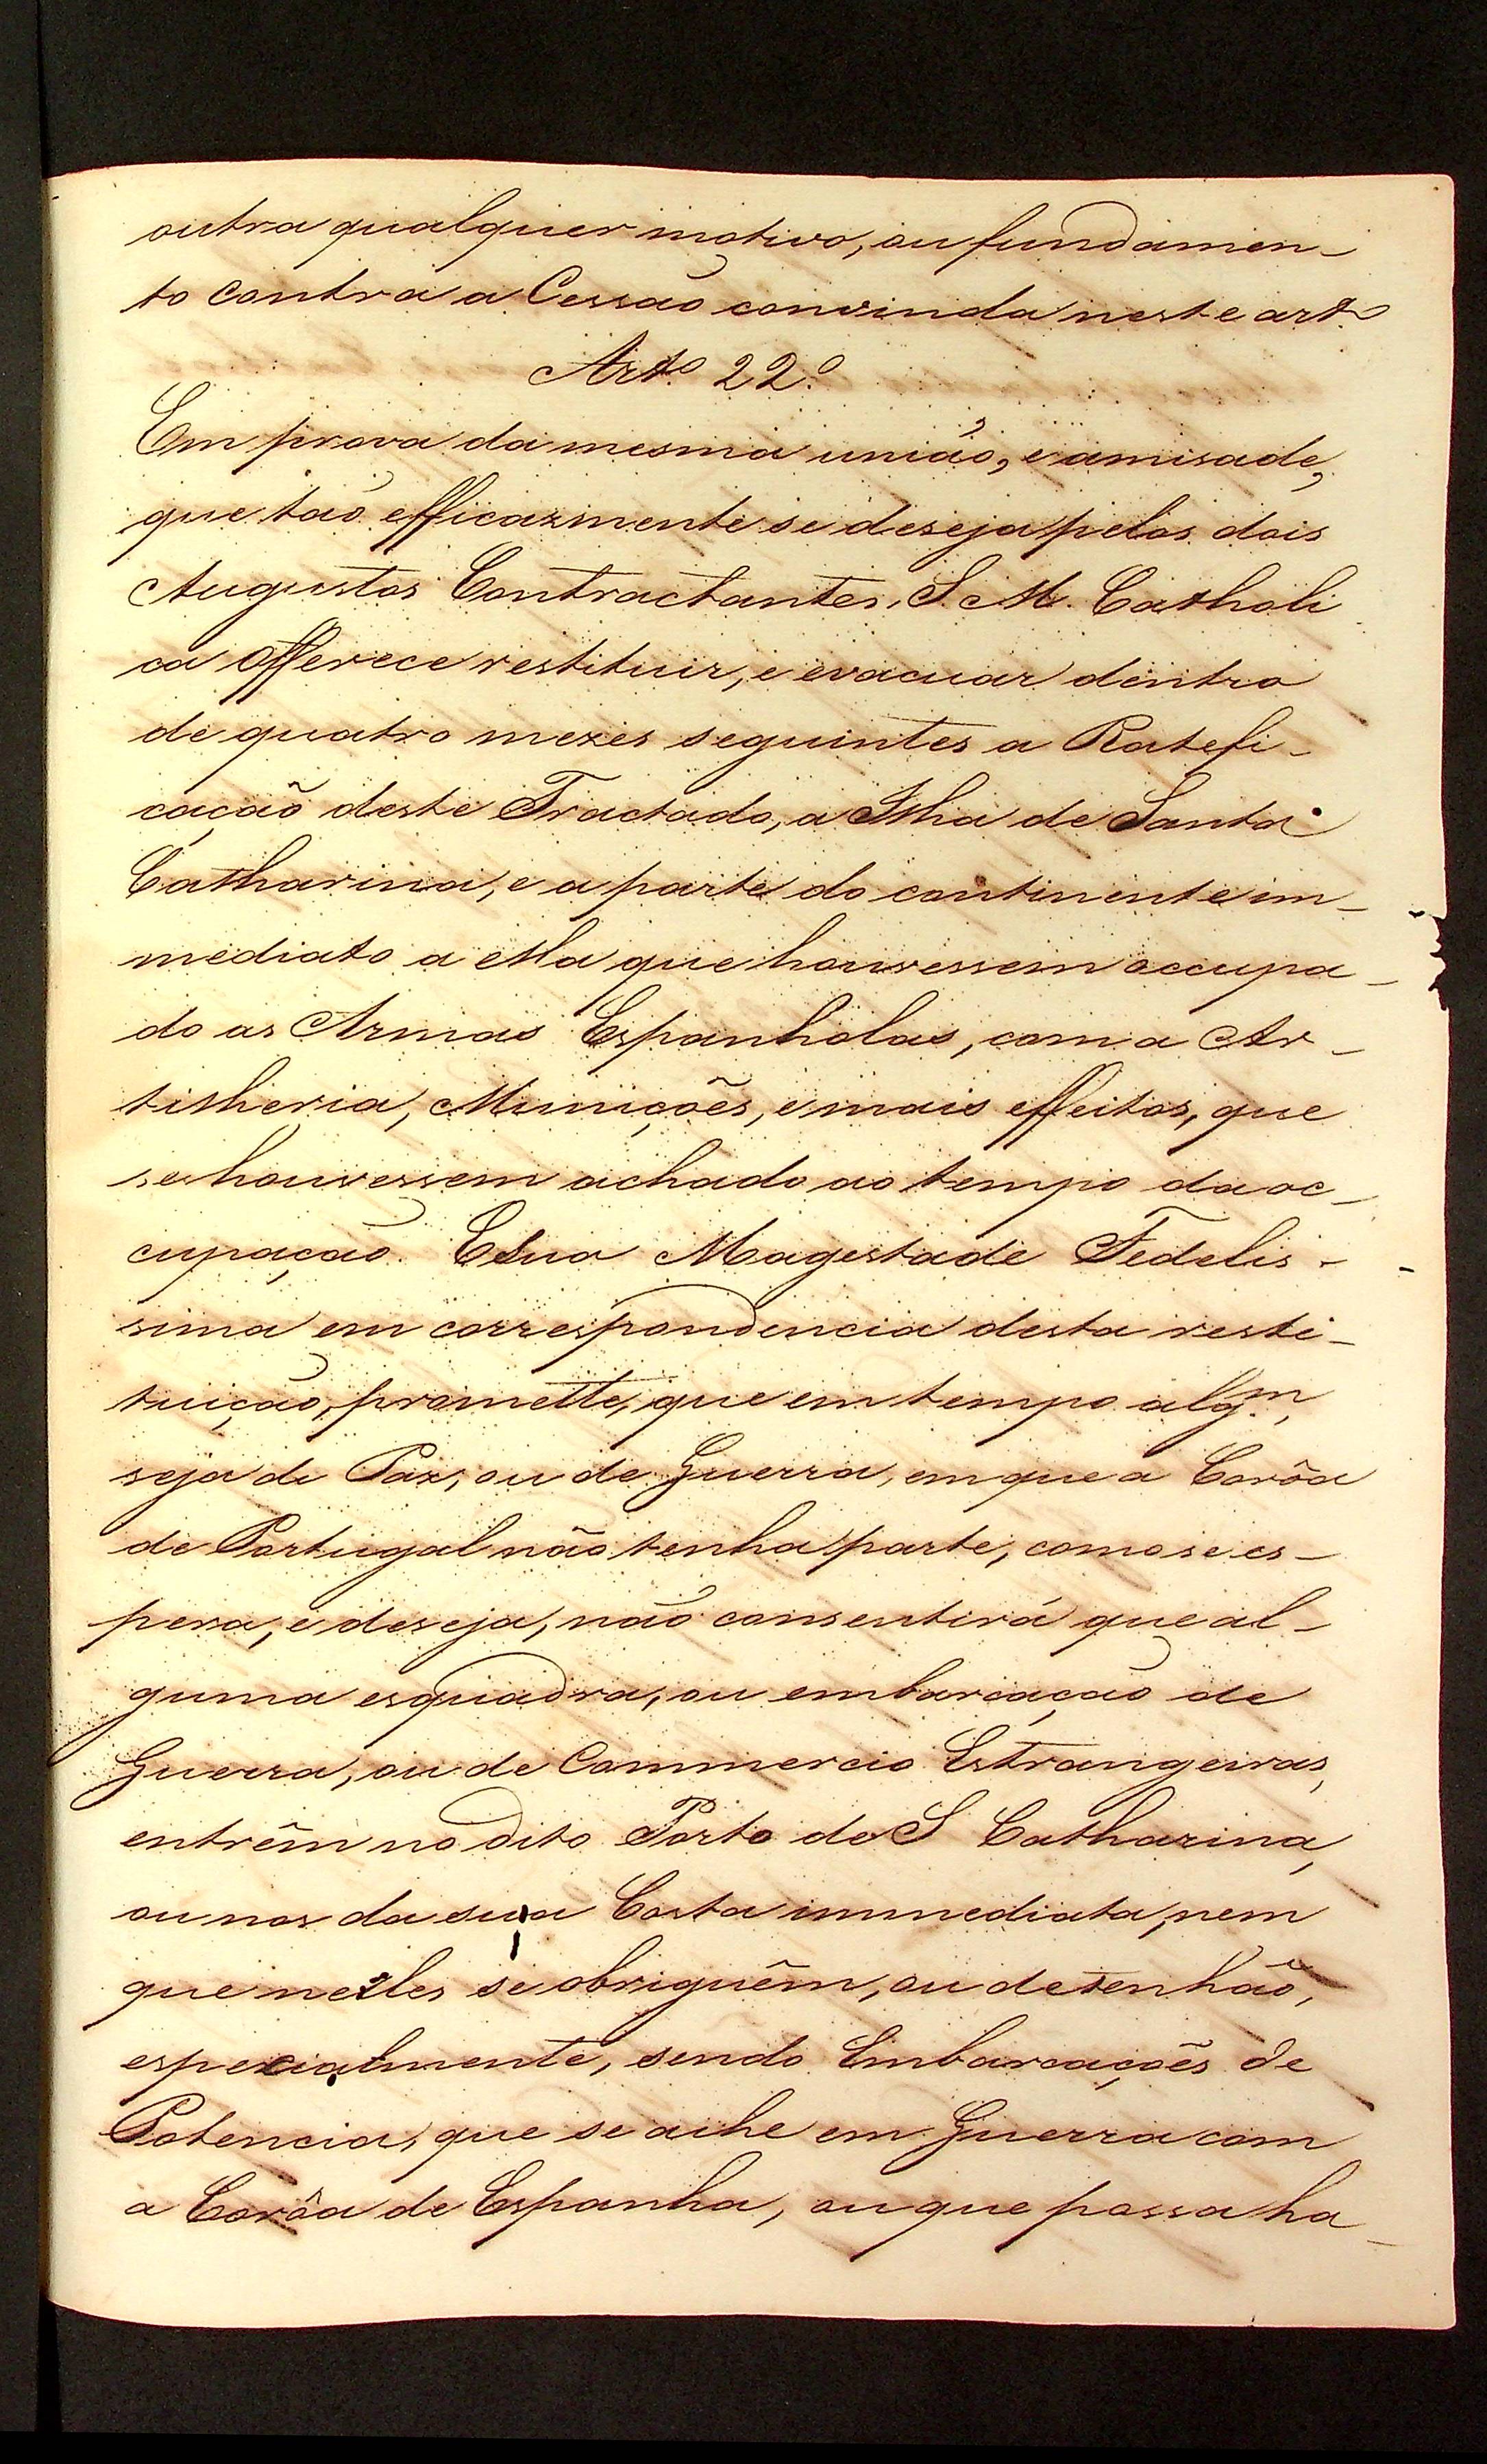 outra qualquer motivo, ou fundamen-
to contra a Cessão convinda neste art.º
Art.º 22.º
Em prova da mesma união, e amisade,
que tão efficazmente se deseja pelos dois
Augustos Contractantes, S. M. Catholi
ca offerece restituir, e evacuar dentro
de quatro mezes seguintes a Ratefi-
cação deste Tractado, a Ilha de Santa
Catharina, e a parte do continente im-
mediato a ella que houvessem occupa-
do as Armas Espanholas, com a Ar-
tilheria, Munições, e mais effeitos, que
se houvessem achado ao tempo da oc-
cupação. E Sua Magestade Fedelis-
sima em correspondencia desta resti-
tuição, promette, que em tempo algm,
seja de Paz, ou de Guerra, em que a Corôa
de Portugal não tenha parte, como se es-
pera, e deseja, não consentirá que al-
guma esquadra, ou embarcação de
Guerra, ou de Commercio Estrangeiras,
entrêm no dito Porto de S Catharina,
ou nos da sua Costa immediata, nem
que nelles se obriguêm, ou detenhão,
especialmente, sendo Embarcações de
Potencia, que se ache em Guerra com
a Corôa de Espanha, ou que possa ha-